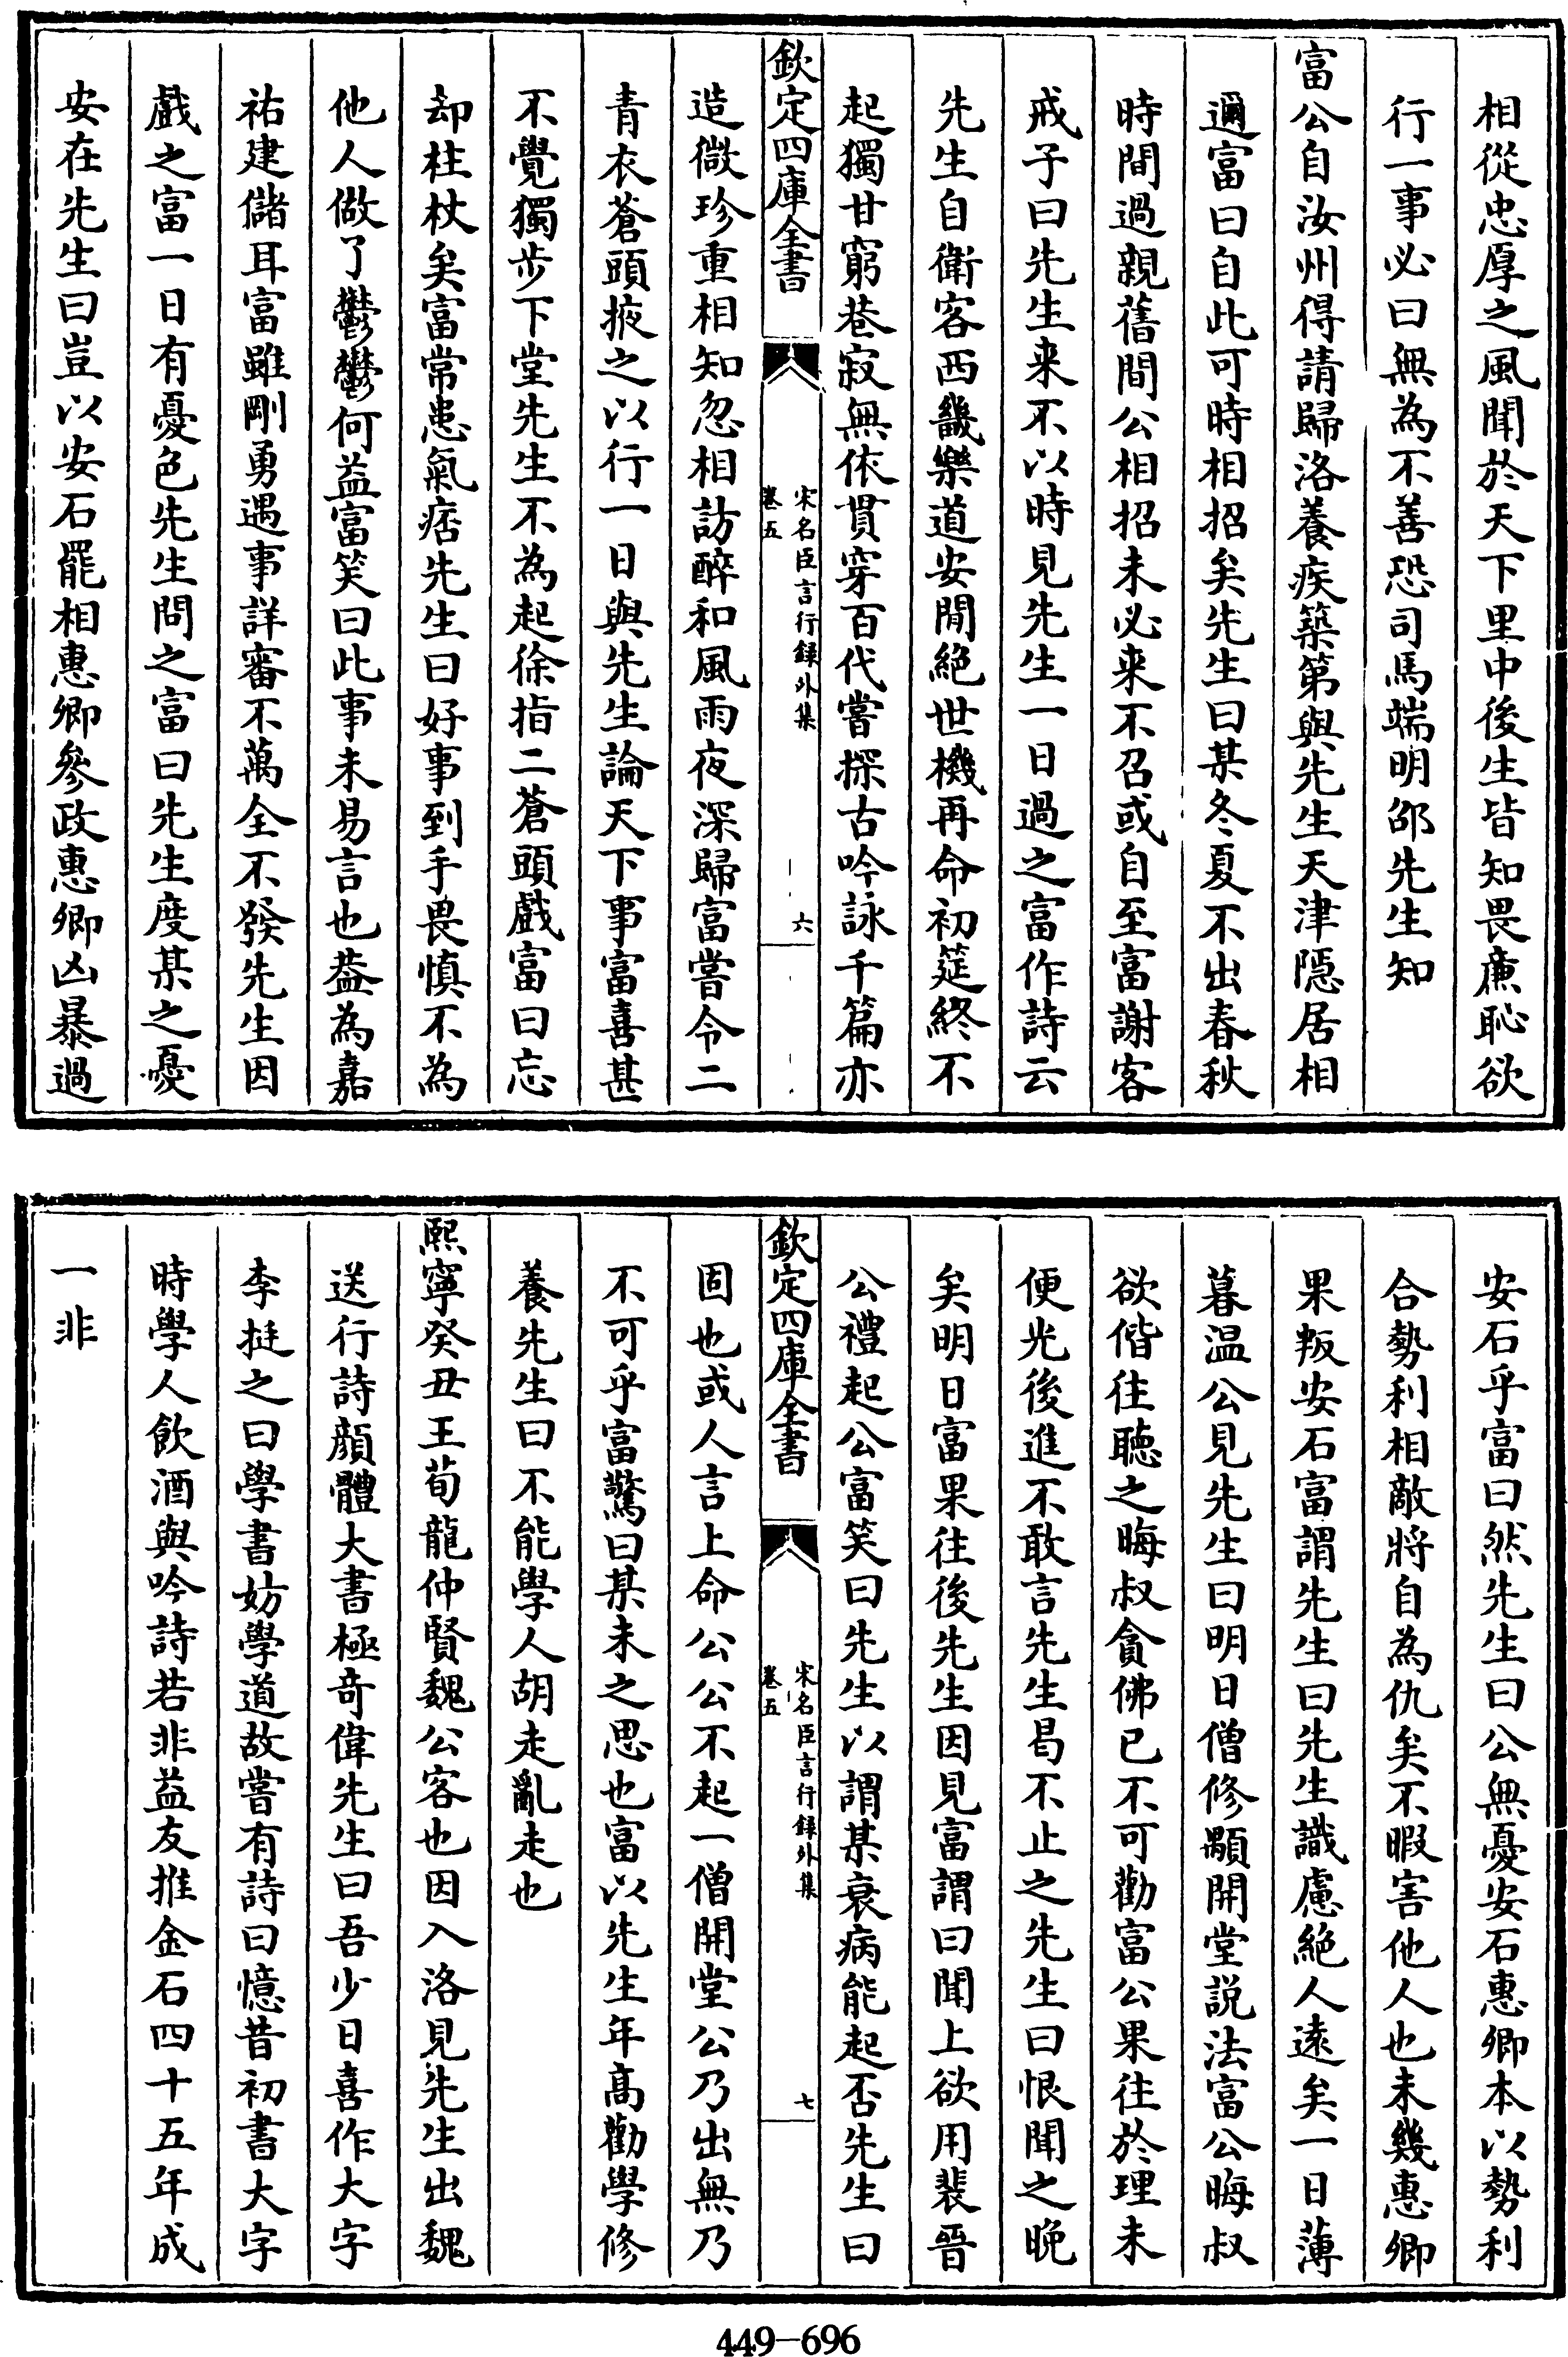 相從忠厚之風聞於天下里中後生皆知畏㢘恥欲
行一事必曰無為不善恐司馬端明邵先生知
富公自汝州得請歸洛養疾築第與先生天津隱居相
邇富曰自此可時相招矣先生曰某冬夏不出春秋
時間過親舊間公相招未必来不召或自至富謝客
戒子曰先生来不以時見先生一日過之富作詩云
先生自衛客西畿樂道安閒絶世機再命初筵終不
起獨甘窮巷寂無依貫穿百代嘗探古吟詠千篇亦
欽定四庫全書
宋名臣言行録外集
卷五
六
造微珍重相知忽相訪醉和風雨夜深歸富嘗令二
青衣蒼頭掖之以行一日與先生論天下事富喜甚
不覺獨步下堂先生不為起徐指二蒼頭戲富曰忘
却柱杖矣富常患氣痞先生曰好事到手畏慎不為
他人做了鬱鬱何益富笑曰此事未易言也葢為嘉
祐建儲耳富雖剛勇遇事詳審不萬全不發先生因
戲之富一日有憂色先生問之富曰先生度某之憂
安在先生曰豈以安石罷相惠卿參政惠卿凶暴過
安石乎富曰然先生曰公無憂安石惠卿本以勢利
合勢利相敵將自為仇矣不暇害他人也未幾惠卿
果叛安石富謂先生曰先生識慮絶人逺矣一日薄
暮温公見先生曰明日僧修顒開堂説法富公晦叔
欲偕往聴之晦叔貪佛已不可勸富公果往於理未
便光後進不敢言先生曷不止之先生曰恨聞之晚
矣明日富果往後先生因見富謂曰聞上欲用裴晉
公禮起公富笑曰先生以謂某衰病能起否先生曰
欽定四庫全書
宋名臣言行録外集
卷五
七
固也或人言上命公公不起一僧開堂公乃出無乃
不可乎富驚曰某未之思也富以先生年髙勸學修
養先生曰不能學人胡走亂走也
熙寧癸丑王荀龍仲賢魏公客也因入洛見先生出魏
送行詩顔體大書極奇偉先生曰吾少日喜作大字
李挺之曰學書妨學道故嘗有詩曰憶昔初書大字
時學人飲酒與吟詩若非益友推金石四十五年成
一非
449—696